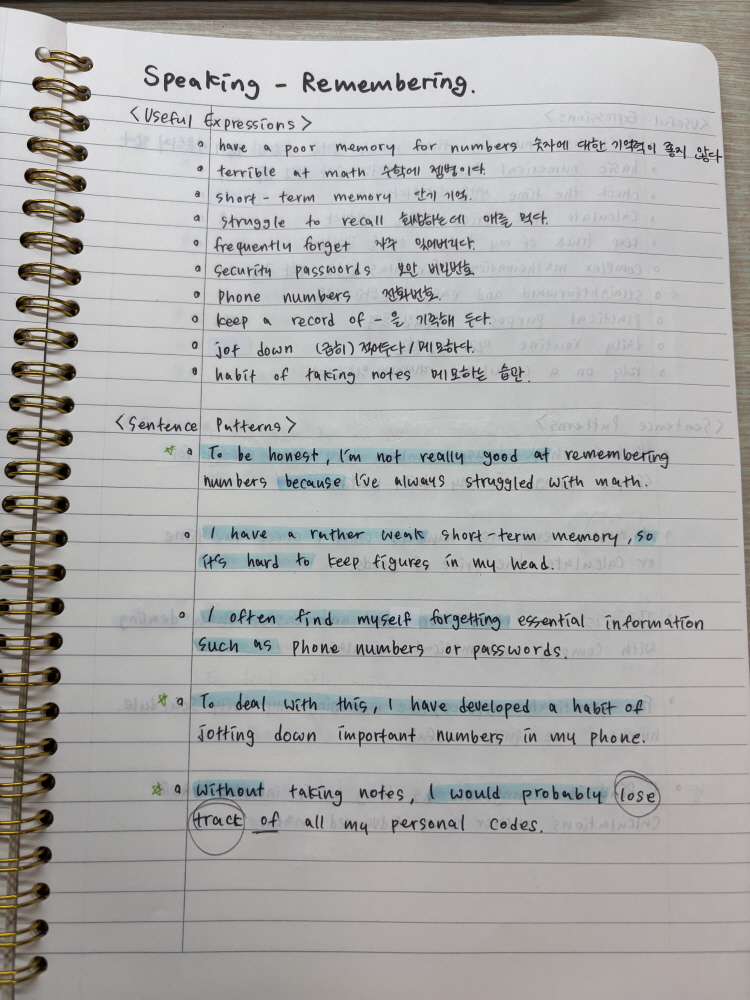 Speaking - Remembering.
<Useful Expressions>
◦ have a poor memory for numbers 숫자에 대한 기억력이 좋지 않다
◦ terrible at math 수학에 젬병이다.
◦ short-term memory 단기 기억.
◦ struggle to recall 회상하는데 애를 먹다.
◦ frequently forget 자주 잊어버리다.
◦ security passwords 보안 비밀번호.
◦ phone numbers 전화번호.
◦ keep a record of ~을 기록해 두다.
◦ jot down (급히) 적어두다/메모하다.
◦ habit of taking notes 메모하는 습관.
<Sentence Patterns>
☆ ◦ To be honest, I'm not really good at remembering
numbers because I've always struggled with math.
◦ I have a rather weak short-term memory, so
it's hard to keep figures in my head.
◦ I often find myself forgetting essential information
such as phone numbers or passwords.
☆ ◦ To deal with this, I have developed a habit of
jotting down important numbers in my phone.
☆ ◦ Without taking notes, I would probably lose
tract of all my personal codes.